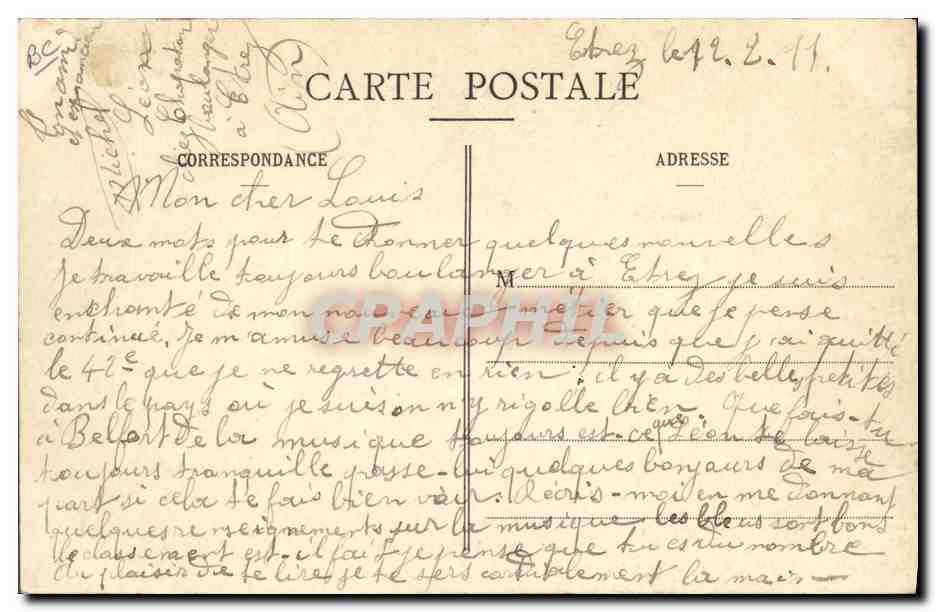 Etrez le 12.2.11.
CARTE POSTALE
CORRESPONDANCE
ADRESSE
M
Mon cher Louis
Deux mots pour te donner quelques nouvelles
je travaille toujours boulanger à Etrez je suis
enchanté de mon nouveau métier que je pense
continué. Je m'amuse beaucoup depuis que j'ai quitté
le 42e que je ne regrette en rien. il y a des belles petites
dans le pays où je suis on n'y rigolle bien. Que fais-tu
à Belfort de la musique toujours est-ce que Léon te laisse
toujours tranquille passe-lui quelques bonjours de ma
part si cela te fais bien voir. Récris-moi en me donnant
quelques renseignements sur la musique les bleus sont bons
le classement est-il fait je pense que tu es du nombre
Au plaisir de te lire je te sers cordialement la main
Michel
Léon
chez Chapaton
boulanger
à Etrez
(Ain)
BC
CPAPHIL